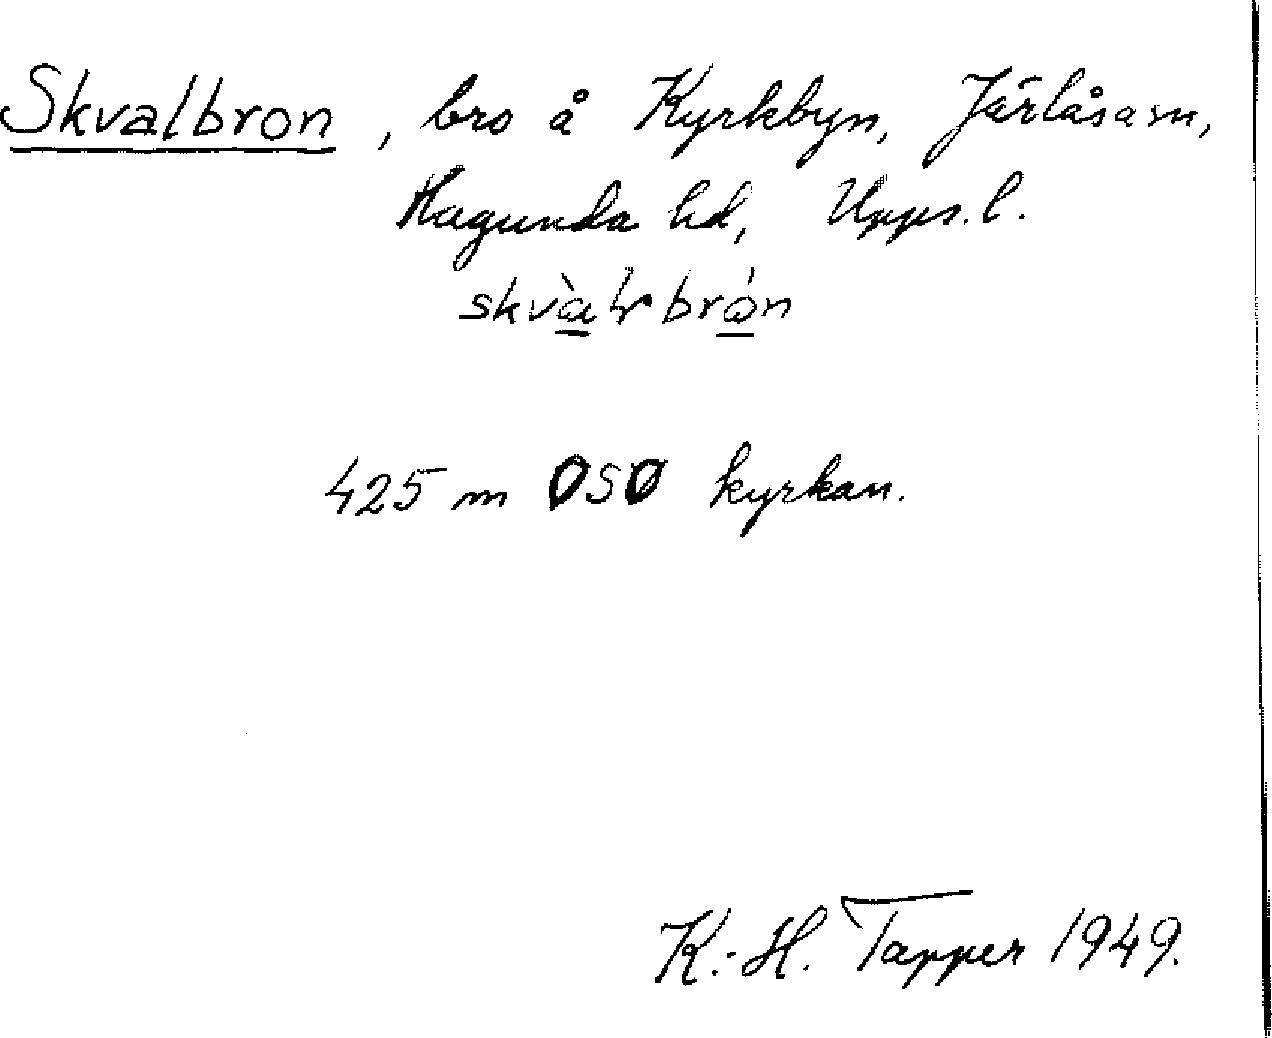 Skvalbron, bro å Kyrkbyn, Järlåsa sn,
Hagunda hd, Upps. l.
425 m OSO kyrkan.
K.-H. Tapper 1949.